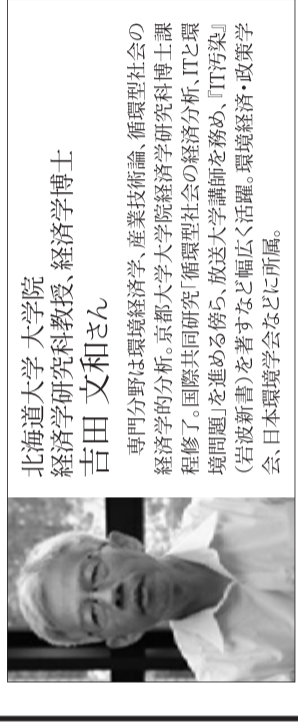 北海道大学 大学院
経済学研究科教授、経済学博士
吉田 文和さん
専門分野は環境経済学、産業技術論、循環型社会の
経済学的分析。京都大学大学院経済学研究科博士課
程修了。国際共同研究「循環型社会の経済分析、ITと環
境問題」を進める傍ら、放送大学講師を務め、『IT汚染』
(岩波新書)を著すなど幅広く活躍。環境経済・政策学
会、日本環境学会などに所属。